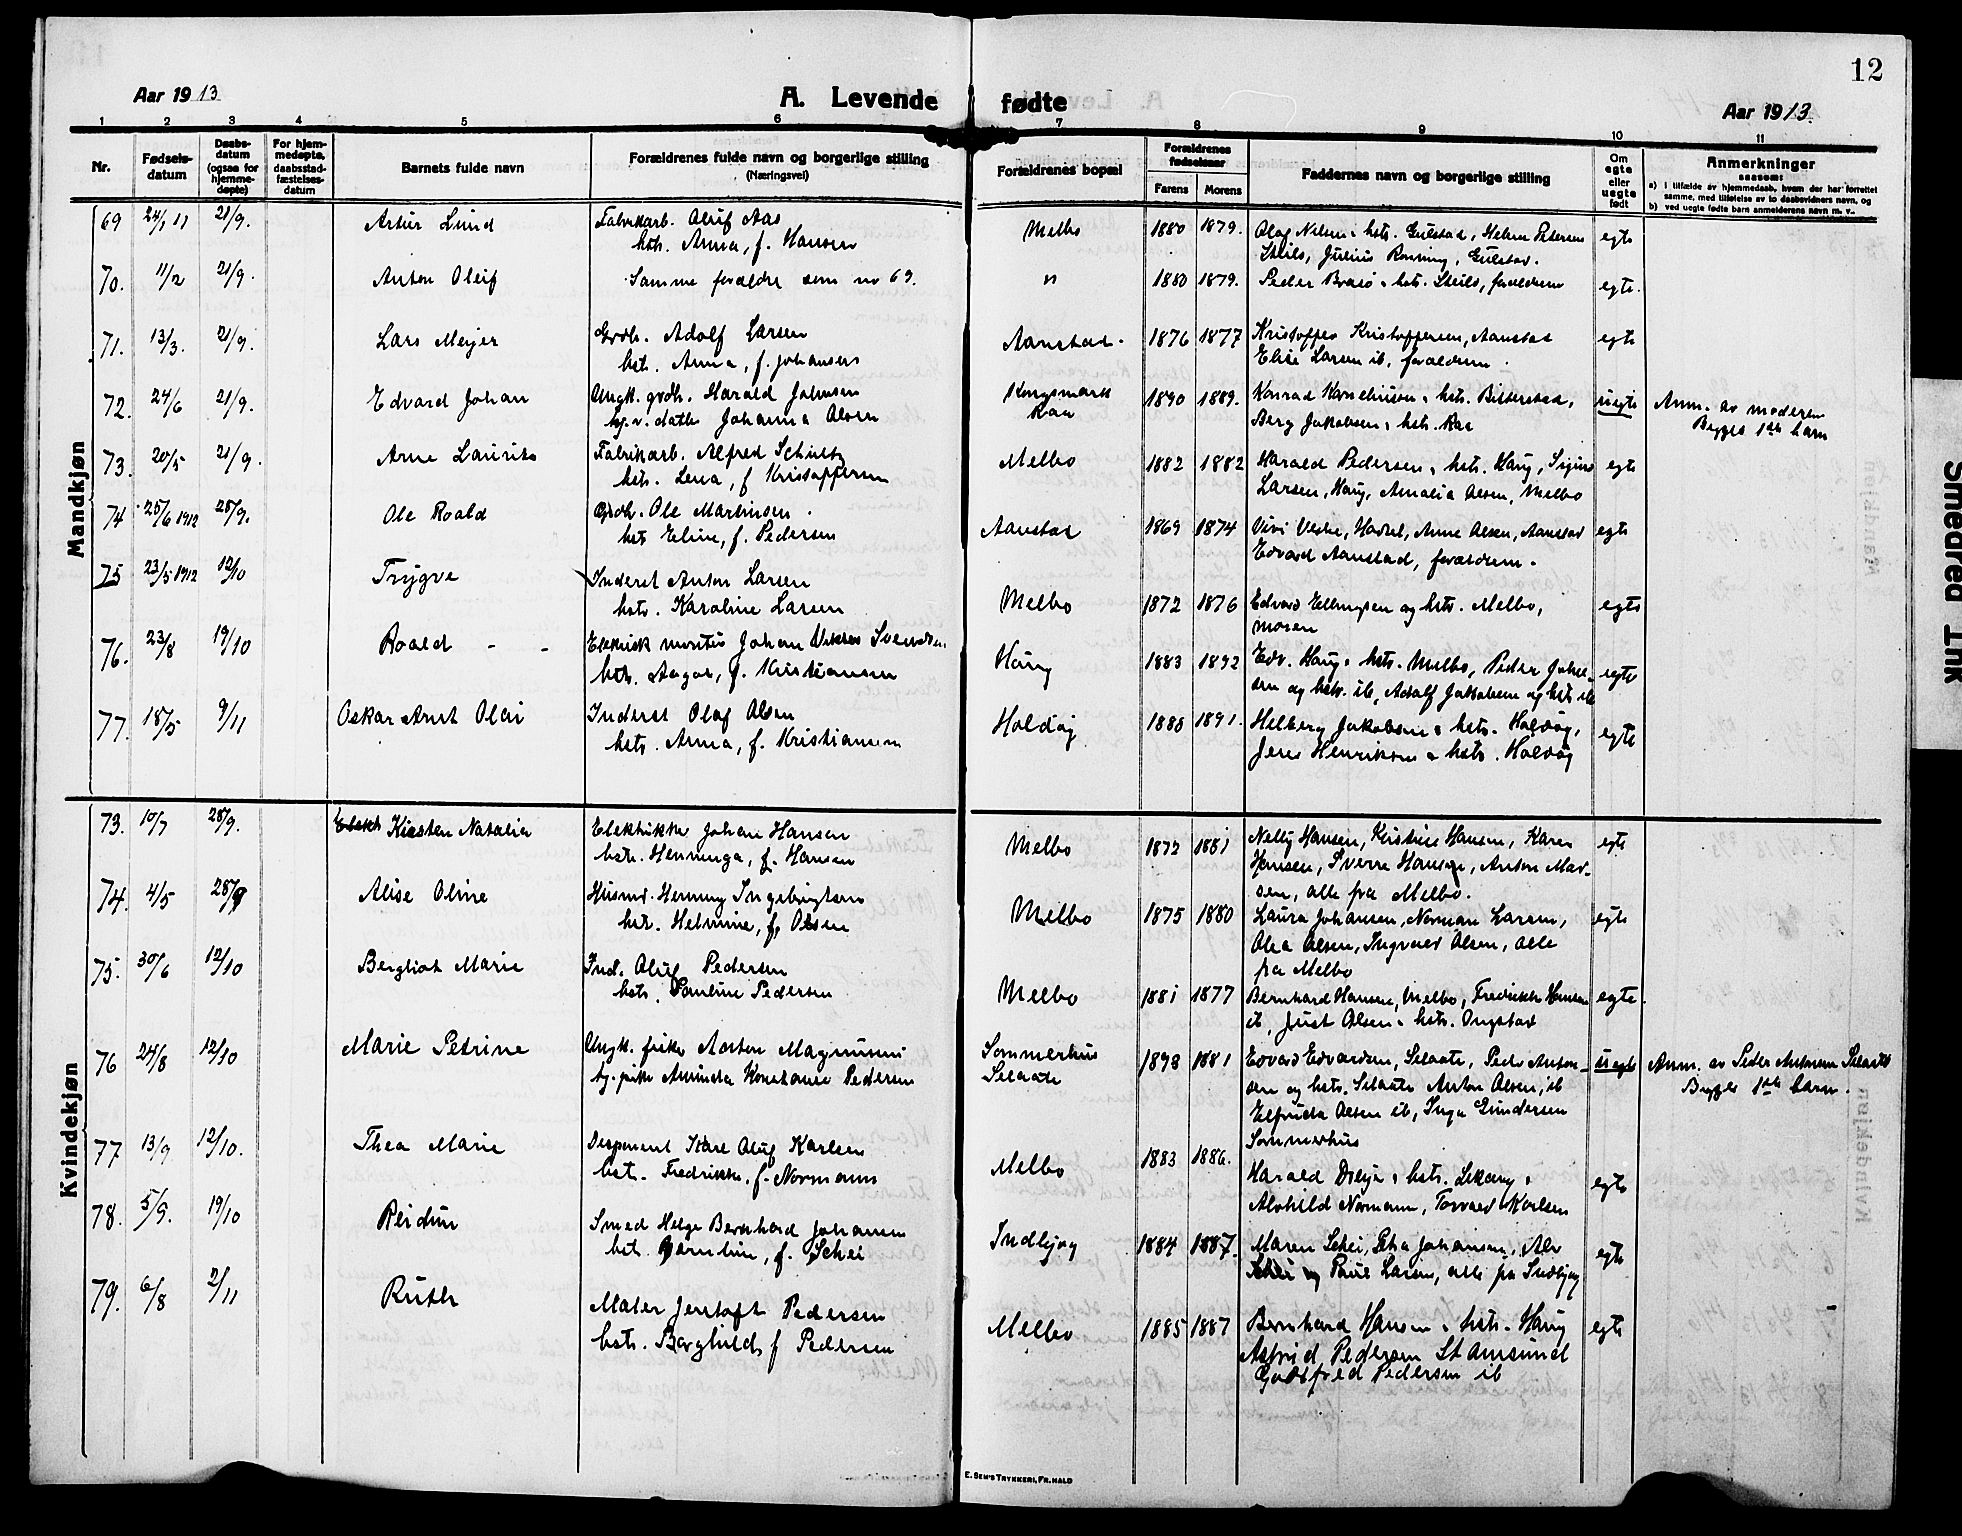 12
Aar 1913
A. Levende fødte
Aar 1913.
1 2 3 4 5 6 7 8 9 10 11
Nr.
Fødsels-
datum
Daabs-
datum
(ogsaa for
hjemme-
døpte)
For hjem-
medøpte,
daabsstad-
fæstelses-
datum
Barnets fulde navn
Forældrenes fulde navn og borgerlige stilling
(Næringsvei)
Forældrenes bopæl
Forældrenes
fødselsaar
Farens Morens
Faddernes navn og borgerlige stilling
Om
egte
eller
uegte
født
Anmerkninger
saasom:
a) i tilfælde av hjemmedaab, hvem der har forrettet
samme, med tilføielse av to daabsvidners navn, og
b) ved uegte fødte barn anmelderens navn m. v.
Mandkjøn
69 24/11 21/9. Artur Lund Fabrikarb. Oluf Aas Melbo 1880 1879. egte
hstr. Anna, f. Hansen
70. 11/2 21/9. Anton Oleif Samme forældre som nr 69. " 1880 1879. Peder hstr. forældrene egte.
71. 13/3. 21/9. Lars Meyer Grdb. Adolf Larsen Aanstad. 1876 1877 Kristoffer Kristoffersen, Aanstad egte
hst. Anna, f. Johansen Elise Larsen ib, forældrene.
72. 24/6 21/9. Edvard Johan Ungk. grdb. Harald Johnsen Kongsmark 1890 1889. Konrad Korneliussen & hstr. Bitterstad, uegte Anm. av moderen
Johanna Olsen Raa Berg Jakobsen & hstr. Raa Begges 1ste barn
73. 20/5 21/9. Arne Laurits Fabrikarb. Alfred Schultz Melbo 1882 1882 Harald Pedersen & hstr. Haug, Sigurd egte
hstr. Lena, f Kristoffersen Larsen, Haug, Amalia Olsen, Melbo
74 25/6 1912 28/9. Ole Roald Grdb. Ole Martinsen Aanstad 1869 1874 Hadsel, Anne Olsen, Aanstad egte
hstr Eline, f. Pedersen Edvard Aanstad, forældrene.
75 23/5 1912 12/10 Trygve Inderst Anton Larsen Melbo 1872 1876 Edvard Ellingsen og hstr. Melbo, egte
hstr. Karoline Larsen moren
76. 23/8 19/10 Roald - - Elektrisk montør Johan Svendsen Haug 1883 1892 Edv. Haug & hstr. Melbo, Peder Johan- egte
hstr. Aagot, f. Kristiansen sen og hstr. ib, Adolf Jakobsen og hstr ib
77. 18/5 9/11 Oskar Arnt Olai Inderst Olaf Olsen Holdøy 1888 1891. Helberg Jakobsen & hstr. Holdøy, egte
hstr. Anna, f. Kristiansen Jens Henriksen & hstr. Holdøy
Kvindekjøn
73. 10/7 28/9. Kirsten Natalia Elektrikker Johan Hansen Melbo 1872 1881 Nelly Hansen, Kristine Hansen, Karen egte
hstr. Henninga, f. Hansen Hansen, Sverre Hansen, Anton Mad-
sen, alle fra Melbo.
74. 4/5 28/9 Alise Oline Husmd. Henning Ingebrigtsen Melbo 1875 1880 Laura Johansen, Norman Larsen, egte
hstr. Helmine, f. Olsen Olea Olsen, Ingvald Olsen, alle
fra Melbo
75. 30/6 12/10 Bergliot Marie Ind. Oluf Pedersen Melbo 1881 1877 Bernhard Hansen, Melbo, Fredrikke Hansen egte.
hstr. Pauline Pedersen ib, Just Olsen & hstr.
76 24/8 12/10 Marie Petrine Ungk. fisker Anton Magnussen Sommerhus 1893 1881 Edvard Edvardsen, Selaate, Peder Anton- uegte Anm. av Peder Antonsen Selaate
pike Aminda Konstanse Pedersen Selaate sen og hstr. Selaate Anton Olsen, ib Begges 1ste barn.
Elfrida Olsen ib, Inga Gundersen
Sommerhus
77 13/9 12/10. Thea Marie Disponent Kare Oluf Karlsen Melbo 1883 1886. Harald Dreyer & hstr. egte
hst. Fredrikke, f. Normann Alvhild Normann, Torvald Karlsen
78. 5/9. 19/10 Reidun Smed Helge Bernhard Johansen Indbjog 1884 1887. Maren Schei, Petra Johansen, egte
hst. f. Schei Schei og Paul Larsen, alle fra Indbjog
79. 6/8 2/11 Ruth Maler Jentoft Pedersen Melbo 1885 1887 Bernhard Hansen & hstr. Haug egte
hstr. Borghild, f Pedersen Astrid Pedersen Stamsund
Godtfred Pedersen ib
E. Sem's Trykkeri, Fr.hald